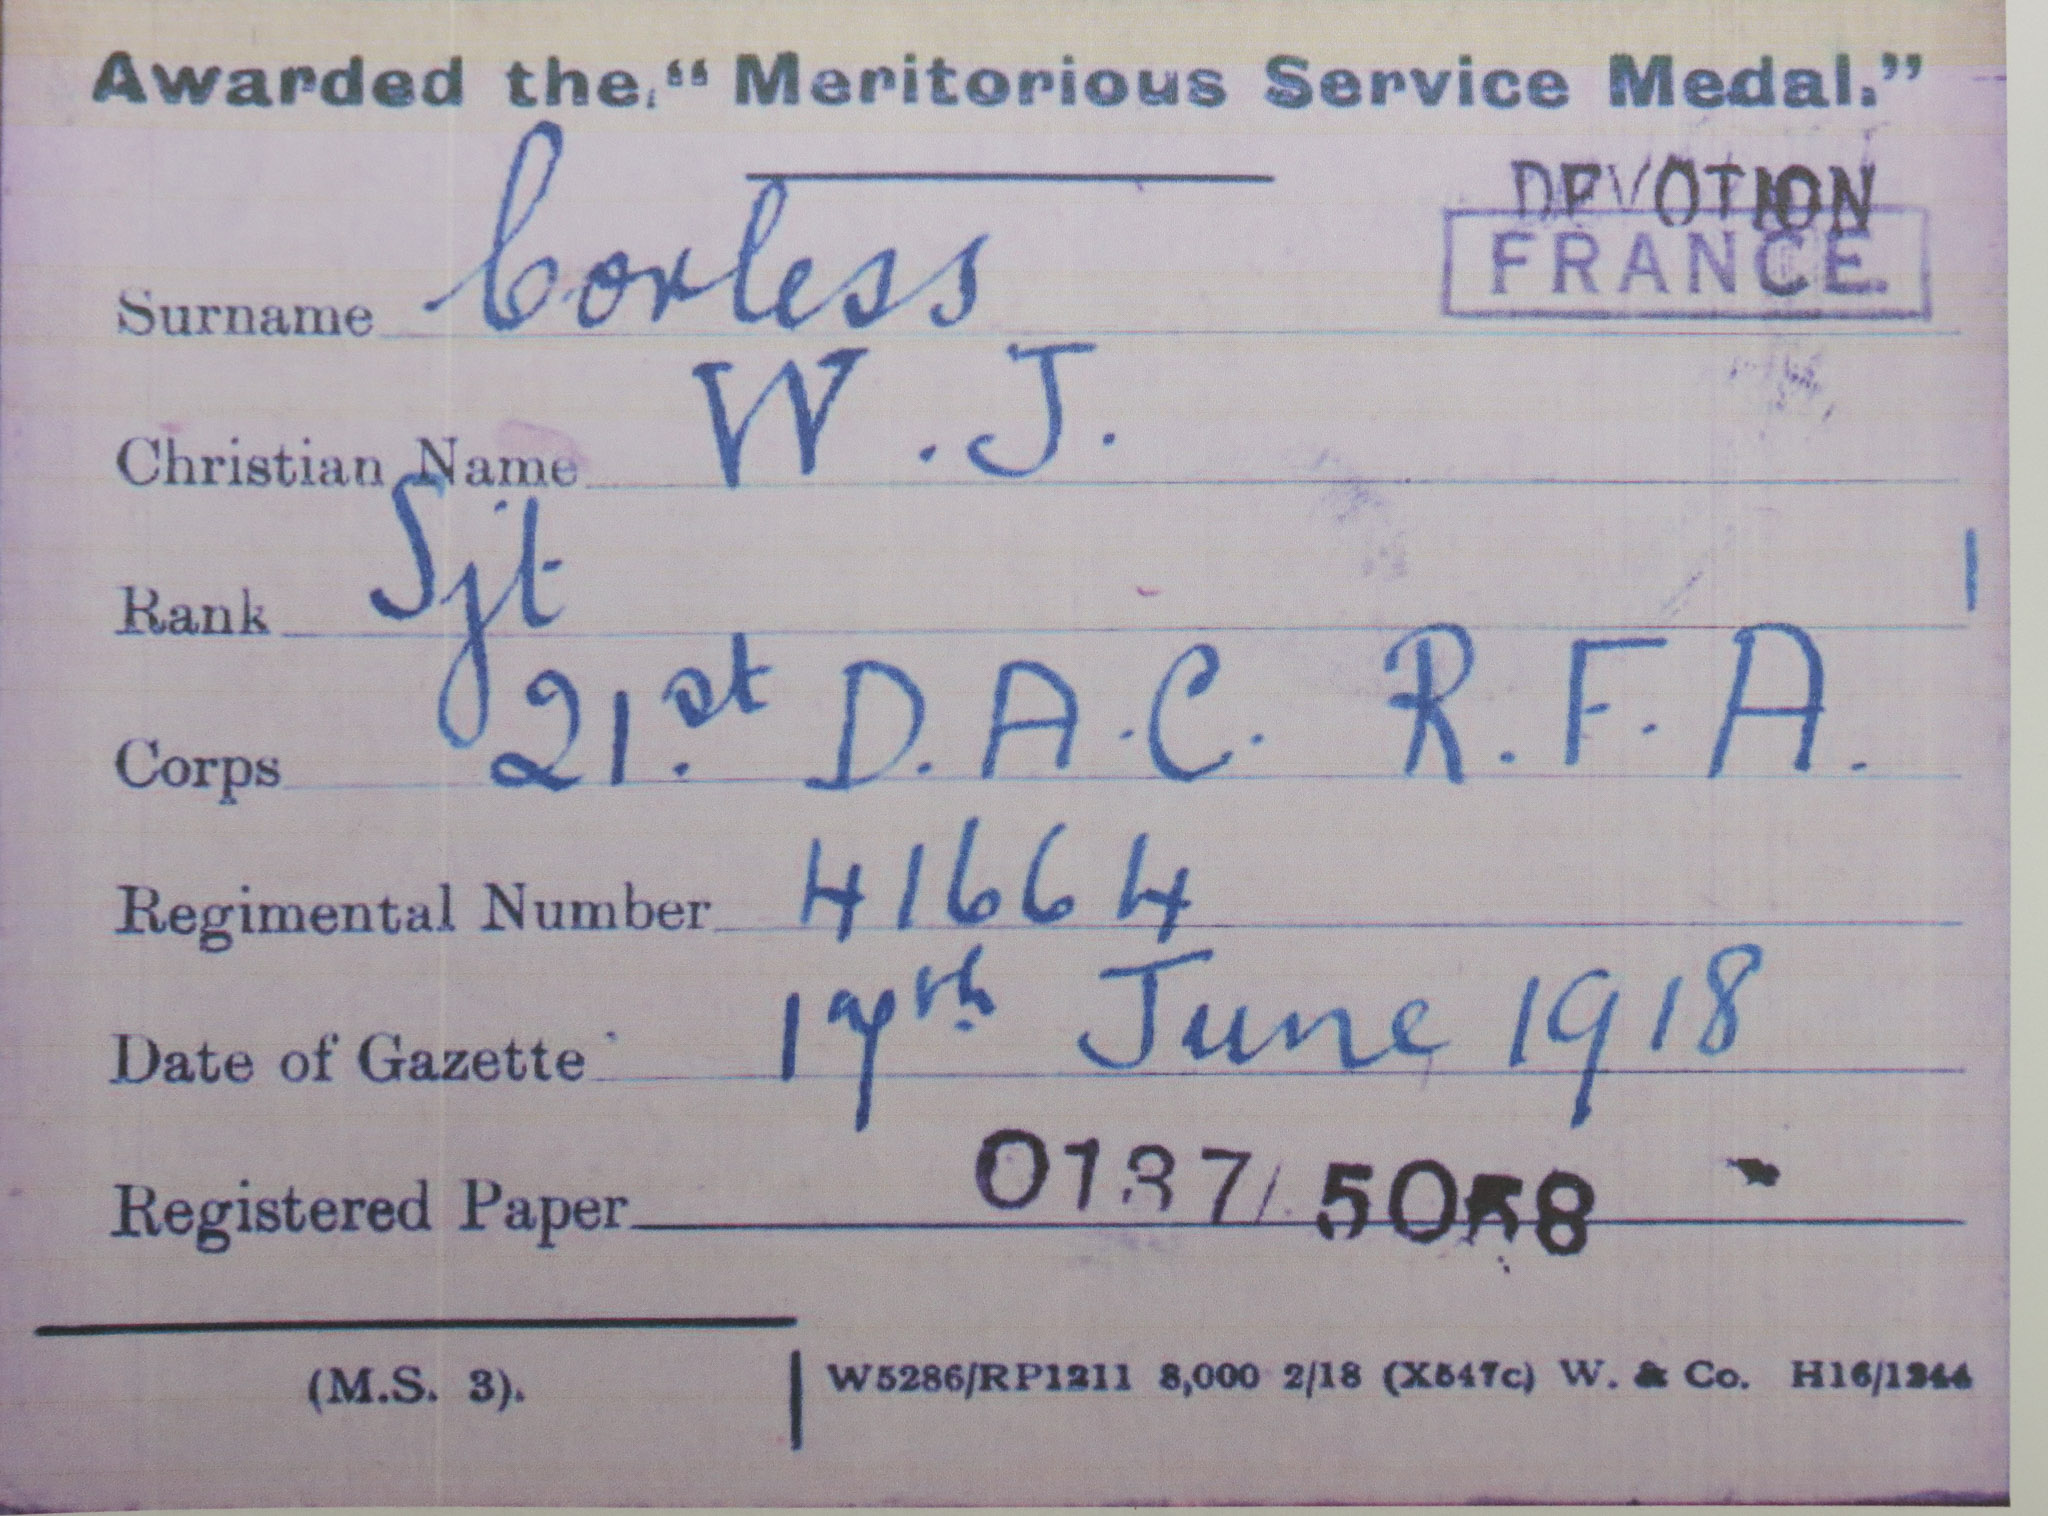 Awarded the "Meritorious Service Medal."
DEVOTION
FRANCE.
Surname Corless
Christian Name W. J.
Rank Sjt
Corps 21.st D.A.C. R.F.A.
Regimental Number 41664
Date of Gazette 17th June 1918
Registered Paper 0137/
(M.S. 3). W5286/RP1211 8,000 2/18 (X547c) W. & Co. H16/1244